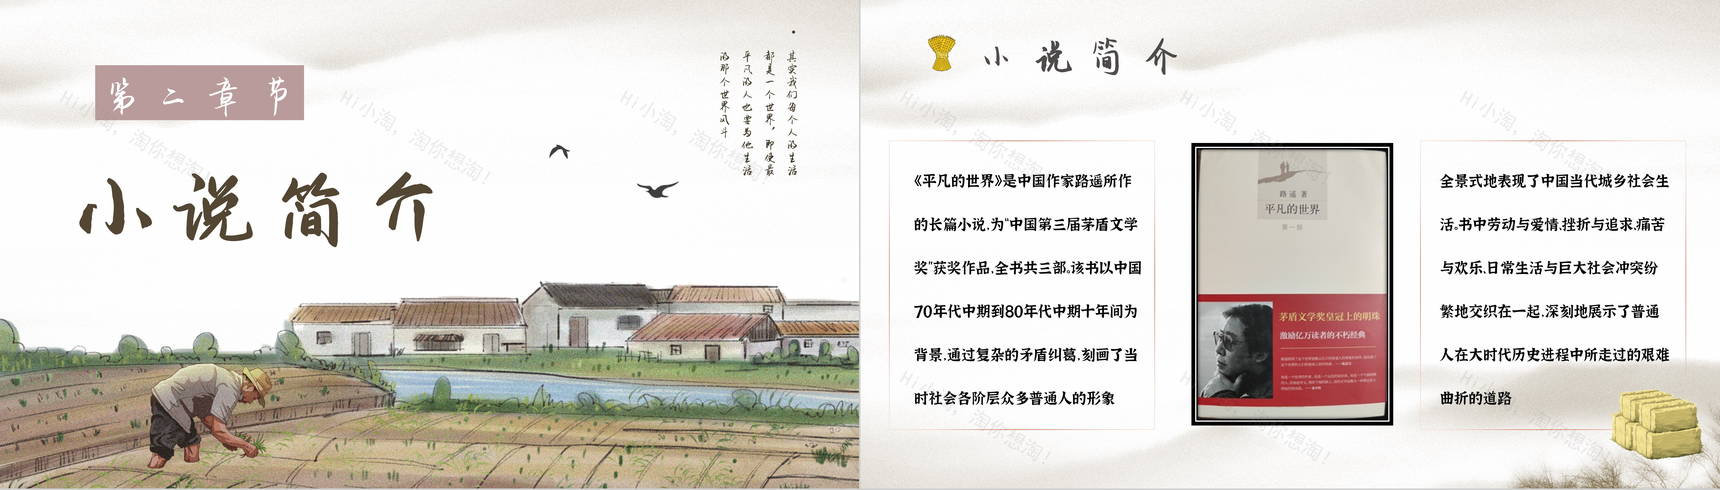 第二章节
小说简介
其实我们每个人的生活
都是一个世界，即使最
平凡的人也要为他生活
的那个世界奋斗
小说简介
《平凡的世界》是中国作家路遥所作
的长篇小说,为"中国第三届茅盾文学
奖"获奖作品,全书共三部。该书以中国
70年代中期到80年代中期十年间为
背景,通过复杂的矛盾纠葛,刻画了当
时社会各阶层众多普通人的形象
路遥 著
平凡的世界
第一部
茅盾文学奖皇冠上的明珠
激励亿万读者的不朽经典
全景式地表现了中国当代城乡社会生
活。书中劳动与爱情,挫折与追求,痛苦
与欢乐,日常生活与巨大社会冲突纷
繁地交织在一起,深刻地展示了普通
人在大时代历史进程中所走过的艰难
曲折的道路
Hi小淘，淘你想淘！
Hi小淘，淘你想淘！
Hi小淘，淘你想淘！
Hi小淘，淘你想淘！
Hi小淘，淘你想淘！
Hi小淘，淘你想淘！